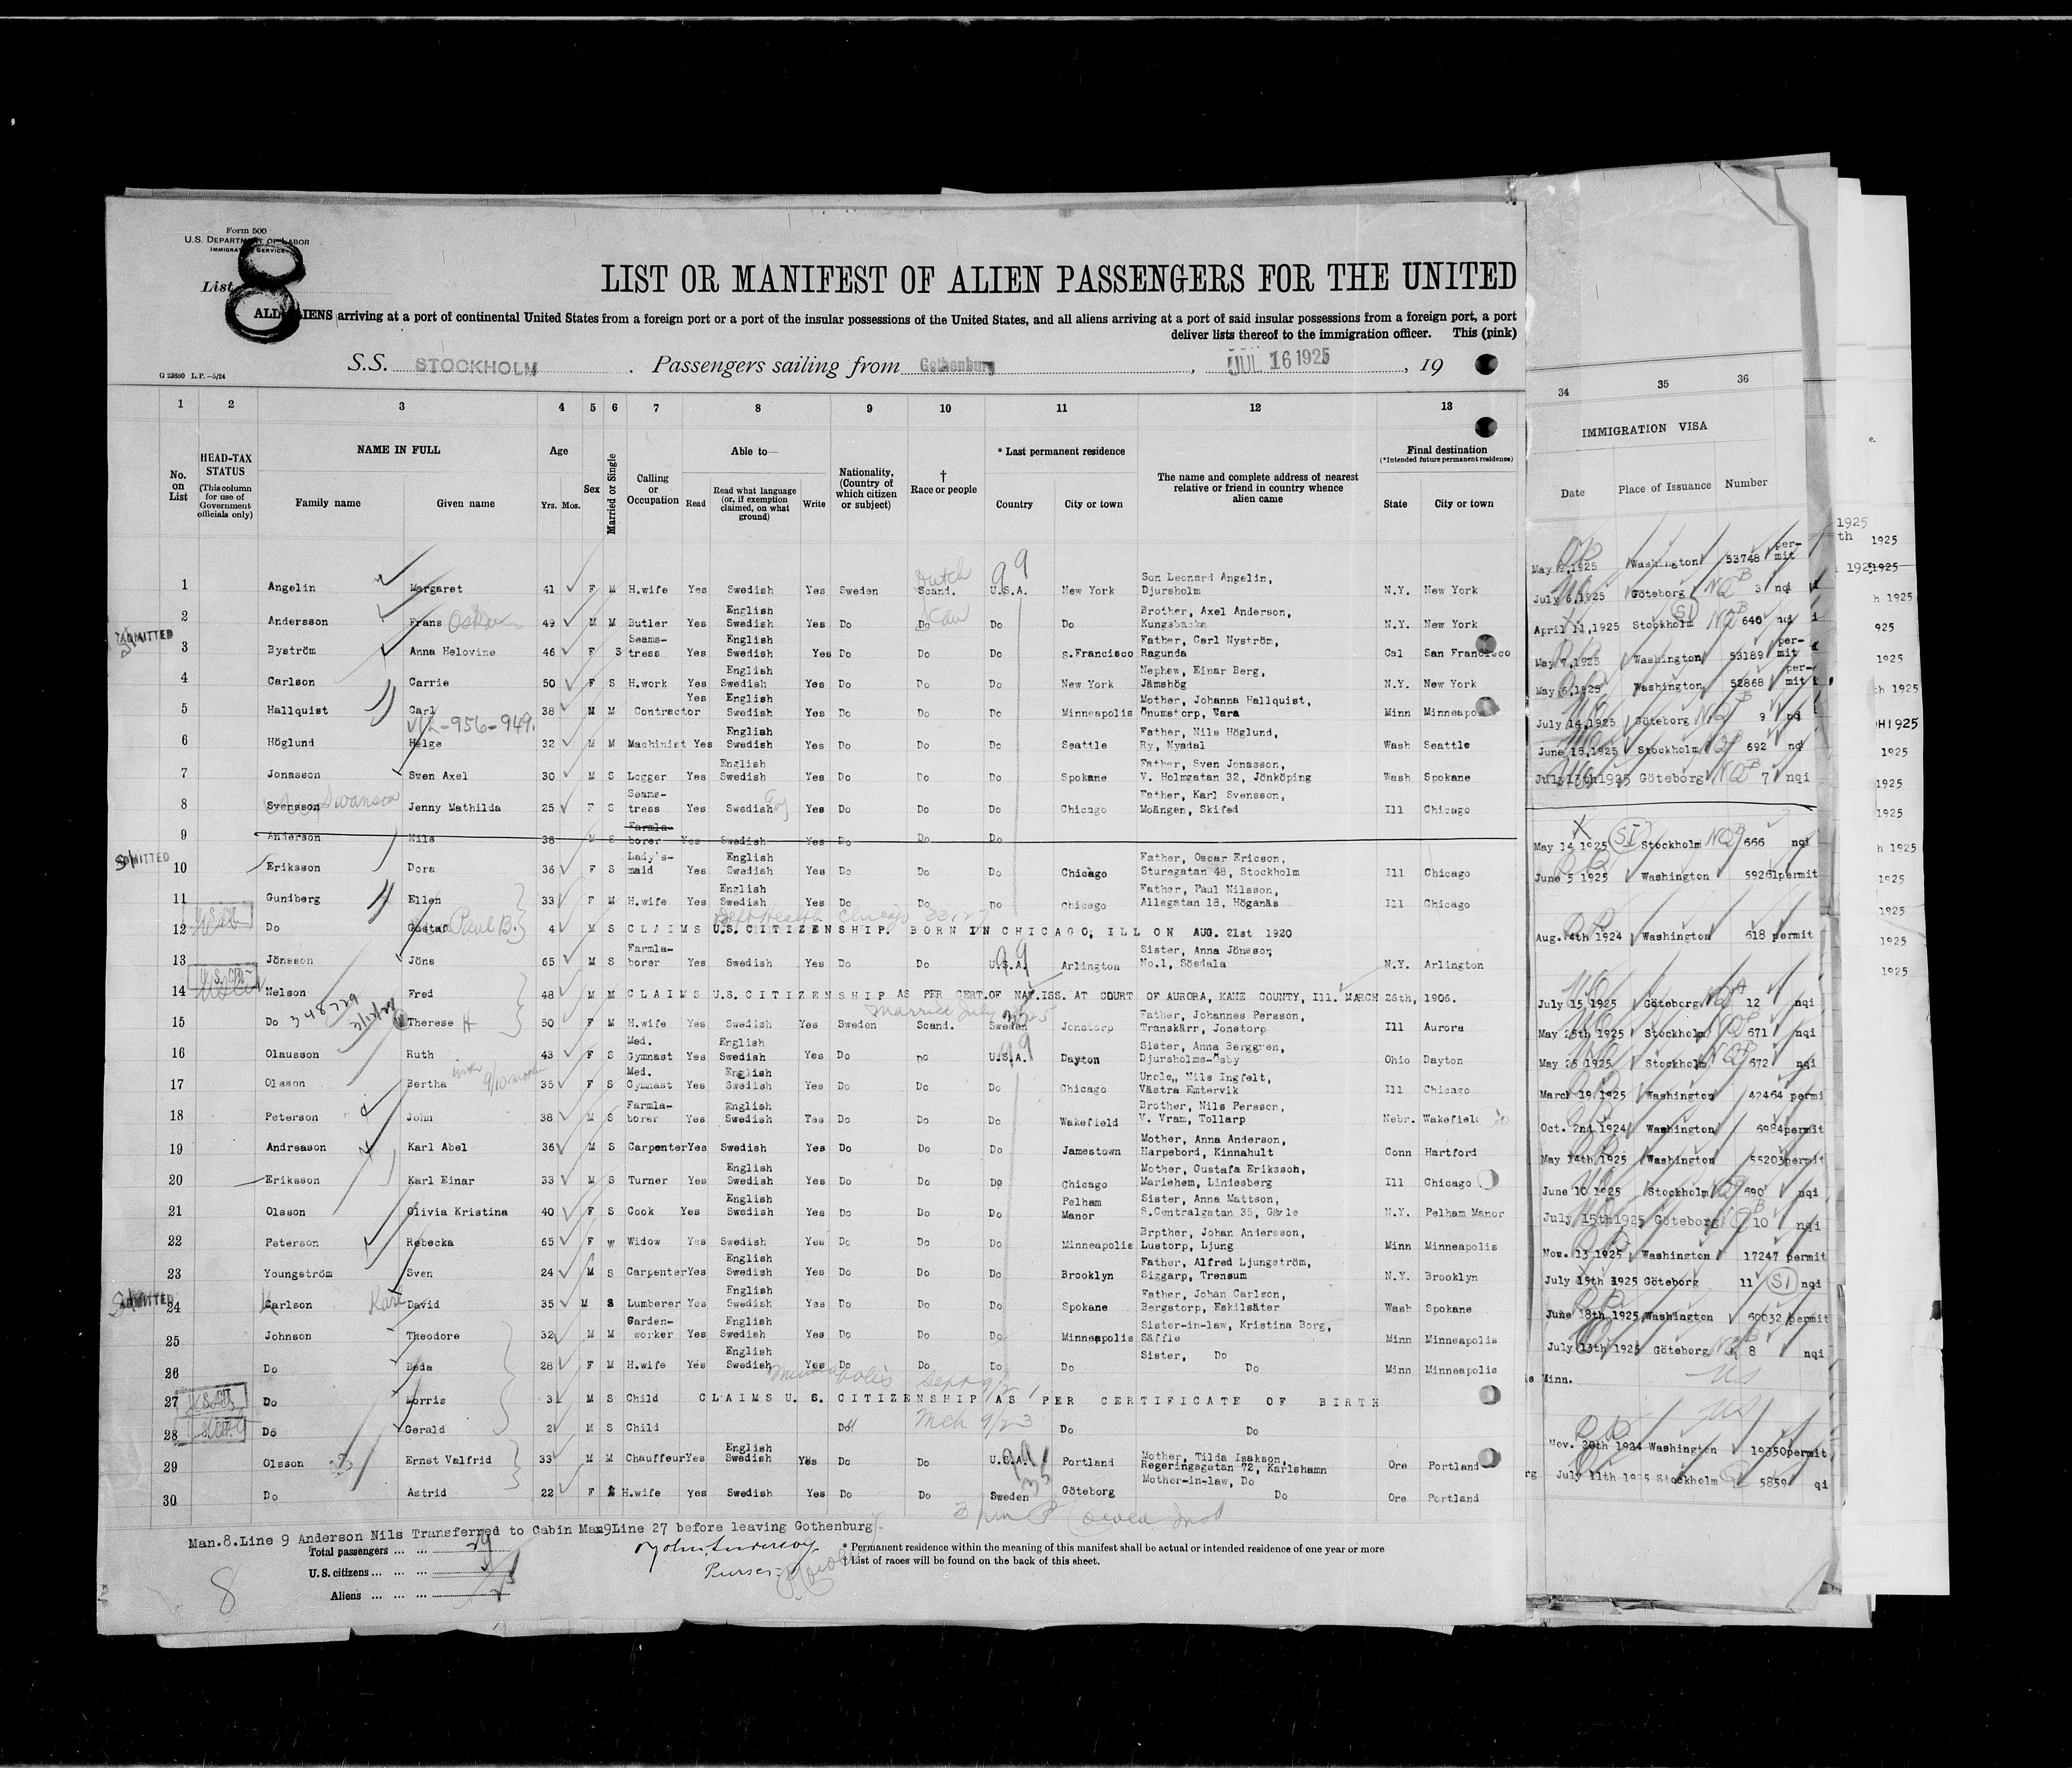 Form 500
U.S. DEPARTMENT OF LABOR
IMMIGRATION SERVICE
List 8
LIST OR MANIFEST OF ALIEN PASSENGERS FOR THE UNITED
ALL ALIENS arriving at a port of continental United States from a foreign port or a port of the insular possessions of the United States, and all aliens arriving at a port of said insular possessions from a foreign port, a port
deliver lists thereof to the immigration officer. This (pink)
G 23880 L.P.—5/24
S.S. STOCKHOLM . Passengers sailing from Gothenburg , JUL 16 1925 , 19
1 2 3 4 5 6 7 8 9 10 11 12 13 34 35 36
No. on List
HEAD-TAX STATUS (This column for use of Government officials only)
NAME IN FULL Family name Given name
Age Yrs. Mos.
Sex
Married or Single
Calling or Occupation
Able to— Read Read what language (or, if exemption claimed, on what ground) Write
Nationality, (Country of which citizen or subject)
† Race or people
* Last permanent residence Country City or town
The name and complete address of nearest relative or friend in country whence alien came
Final destination (*Intended future permanent residence) State City or town
IMMIGRATION VISA Date Place of Issuance Number
1 Angelin Margaret 41 F M H.wife Yes Swedish Yes Sweden Dutch Scand. 99 U.S.A. New York Son Leonard Angelin, Djursholm N.Y. New York May 9,1925 Washington 53748 per-mit
2 Andersson Frans Oskar 49 M M Butler Yes English Swedish Yes Do Do Do Do Brother, Axel Anderson, Kungsbacka N.Y. New York July 6,1925 Göteborg NQB 3 nqi
ADMITTED
3 Byström Anna Helovine 46 F S Seams-tress Yes English Swedish Yes Do Do Do S.Francisco Father, Carl Nyström, Ragunda Cal San Francisco April 11,1925 Stockholm SI NQB 640 nqi
4 Carlson Carrie 50 F S H.work Yes English Swedish Yes Do Do Do New York Nephew, Einar Berg, Jämshög N.Y. New York May 7,1925 Washington 53189 per-mit
5 Hallquist Carl 38 M M Contractor Yes English Swedish Yes Do Do Do Minneapolis Mother, Johanna Hallquist, Önumstorp, Vara Minn Minneapolis May 6,1925 Washington 52868 per-mit
V/L-956-949.
6 Höglund Helge 32 M M Machinist Yes English Swedish Yes Do Do Do Seattle Father, Nils Höglund, Ry, Nyadal Wash Seattle July 14,1925 Göteborg NQB 9 nqi
7 Jonasson Sven Axel 30 M S Logger Yes English Swedish Yes Do Do Do Spokane Father, Sven Jonasson, V. Holmgatan 32, Jönköping Wash Spokane June 15,1925 Stockholm NQB 692 nqi
8 Svensson Swanson Jenny Mathilda 25 F S Seams-tress Yes Swedish Eng Yes Do Do Do Chicago Father, Karl Svensson, Moängen, Skifed Ill Chicago July 13th1925 Göteborg NQB 7 nqi
9 Anderson Nils 38 M S Farmla-borer Yes Swedish Yes Do Do Do
ADMITTED
10 Eriksson Dora 36 F S Lady's-maid Yes English Swedish Yes Do Do Do Chicago Father, Oscar Ericson, Sturegatan 48, Stockholm Ill Chicago May 14 1925 SI Stockholm NQB 666 nqi
11 Gundberg Ellen 33 F M H.wife Yes English Swedish Yes Do Do Do Chicago Father, Paul Nilsson, Allegatan 18, Höganäs Ill Chicago June 5 1925 Washington 59261permit
U.S. CIT.
12 Do Gustaf Paul B. 4 M S CLAIMS U.S. CITIZENSHIP. BORN IN CHICAGO, ILL ON AUG. 21st 1920
13 Jönsson Jöns 65 M S Farmla-borer Yes Swedish Yes Do Do 99 U.S.A. Arlington Sister, Anna Jönsson, No.1, Sösdala N.Y. Arlington Aug. 4th 1924 Washington 618 permit
U. S. CIT.
14 Nelson Fred 48 M M CLAIMS U.S. CITIZENSHIP AS PER CERT.OF NAT.ISS. AT COURT OF AURORA, KANE COUNTY, Ill. MARCH 26th, 1906.
348729
Married July
15 Do Therese H 50 F M H.wife Yes Swedish Yes Sweden Scand. Sweden Jonstorp Father, Johannes Persson, Transkärr, Jonstorp Ill Aurora July 15,1925 Göteborg NQA 12 nqi
16 Olausson Ruth 43 F S Med. Gymnast Yes English Swedish Yes Do no 99 U.S.A. Dayton Sister, Anna Berggren, Djursholms-Ösby Ohio Dayton May 25th 1925 Stockholm NQB 671 nqi
17 Olsson Bertha 35 F S Med. Gymnast Yes English Swedish Yes Do Do Do Chicago Uncle,, Nils Ingfelt, Västra Emtervik Ill Chicago May 26 1925 Stockholm NQB 672 nqi
18 Peterson John 38 M S Farmla-borer Yes English Swedish Yes Do Do Do Wakefield Brother, Nils Persson, V. Vram, Tollarp Nebr. Wakefield March 19,1925 Washington 42464 permi
19 Andreason Karl Abel 36 M S Carpenter Yes Swedish Yes Do Do Do Jamestown Mother, Anna Anderson, Harpebord, Kinnahult Conn Hartford Oct. 2nd 1924 Washington 6984permit
20 Eriksson Karl Einar 33 M S Turner Yes English Swedish Yes Do Do Do Chicago Mother, Gustafa Eriksson, Mariehem, Lindesberg Ill Chicago May 14th 1925 Washington 55203permit
21 Olsson Olivia Kristina 40 F S Cook Yes English Swedish Yes Do Do Do Pelham Manor Sister, Anna Mattson, S.Centralgatan 35, Gävle N.Y. Pelham Manor June 10 1925 Stockholm NQB 690 nqi
22 Peterson Rebecka 65 F w Widow Yes Swedish Yes Do Do Do Minneapolis Brpther, Johan Andersson, Lustorp, Ljung Minn Minneapolis July 15th1925 Göteborg 10 nqi
23 Youngström Sven 24 M S Carpenter Yes English Swedish Yes Do Do Do Brooklyn Father, Alfred Ljungström, Siggarp, Trensum N.Y. Brooklyn Nov. 13 1925 Washington 17247 permit
ADMITTED
24 Carlson K Karl David 35 M S Lumberer Yes English Swedish Yes Do Do Do Spokane Father, Johan Carlson, Bergstorp, Eskilsäter Wash Spokane July 15th 1925 Göteborg 11 SI nqi
25 Johnson Theodore 32 M M Garden-worker Yes English Swedish Yes Do Do Do Minneapolis Sister-in-law, Kristina Borg, Säffle Minn Minneapolis June 18th 1925 Washington 60032 permit
26 Do Beda 28 F M H.wife Yes English Swedish Yes Do Do Do Do Sister, Do Do Minn Minneapolis July 13th 1925 Göteborg NQB 8 nqi
U.S.CIT.
27 Do Morris 3 M S Child CLAIMS U. S. CITIZENSHIP AS PER CERTIFICATE OF BIRTH Minn. US
U.S.CIT.
28 Do Gerald 2 M S Child Do Do Do US
29 Olsson Ernst Valfrid 33 M M Chauffeur Yes English Swedish Yes Do Do U.S.A. Portland Mother, Tilda Isakson, Regeringsgatan 72, Karlshamn Ore Portland Nov. 20th 1924 Washington 19350permit
30 Do Astrid 22 F H.wife Yes Swedish Yes Do Do Sweden Göteborg Mother-in-law, Do Do Ore Portland July 11th 1925 Stockholm 5859 qi
Man.8.Line 9 Anderson Nils Transferred to Cabin Man9Line 27 before leaving Gothenburg.
Total passengers ... ... 29
U.S. citizens ... ... ...
Aliens ... ... ... ... 25
8
Purser
* Permanent residence within the meaning of this manifest shall be actual or intended residence of one year or more
† List of races will be found on the back of this sheet.